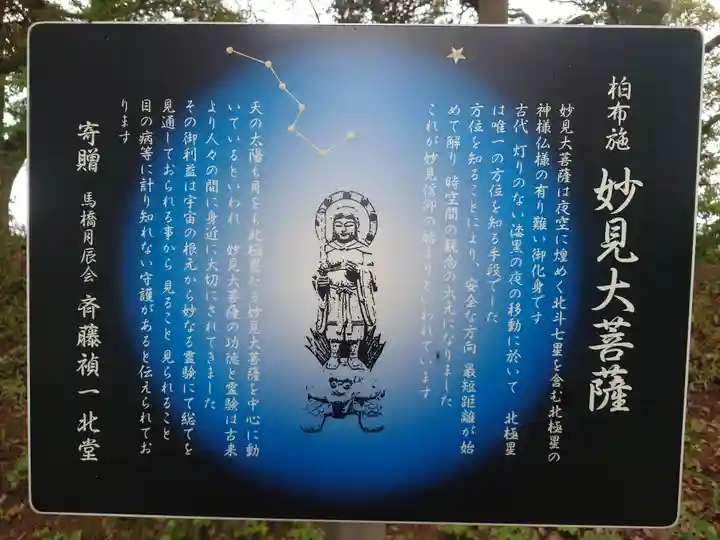 柏布施 妙見大菩薩
妙見大菩薩は夜空に煌めく北斗七星を含む北極星の
神様仏様の有り難い御化身です
古代 灯りのない漆黒の夜の移動に於いて 北極星
は唯一の方位を知る手段でした
方位を知ることにより、安全な方向 最短距離が始
めて解り 時空間の観念の大元になりました
これが妙見信仰の始まりといわれています
天の太陽も月をも北極星たる妙見大菩薩を中心に動
いているといわれ 妙見大菩薩の功徳と霊験は古来
より人々の間に身近に大切にされてきました
その御利益は宇宙の根元から妙なる霊験にて総てを
見通しておられる事から 見ること 見られること
目の病等に計り知れない守護があると伝えられてお
ります
寄贈 馬橋月辰会 斉藤禎一北堂